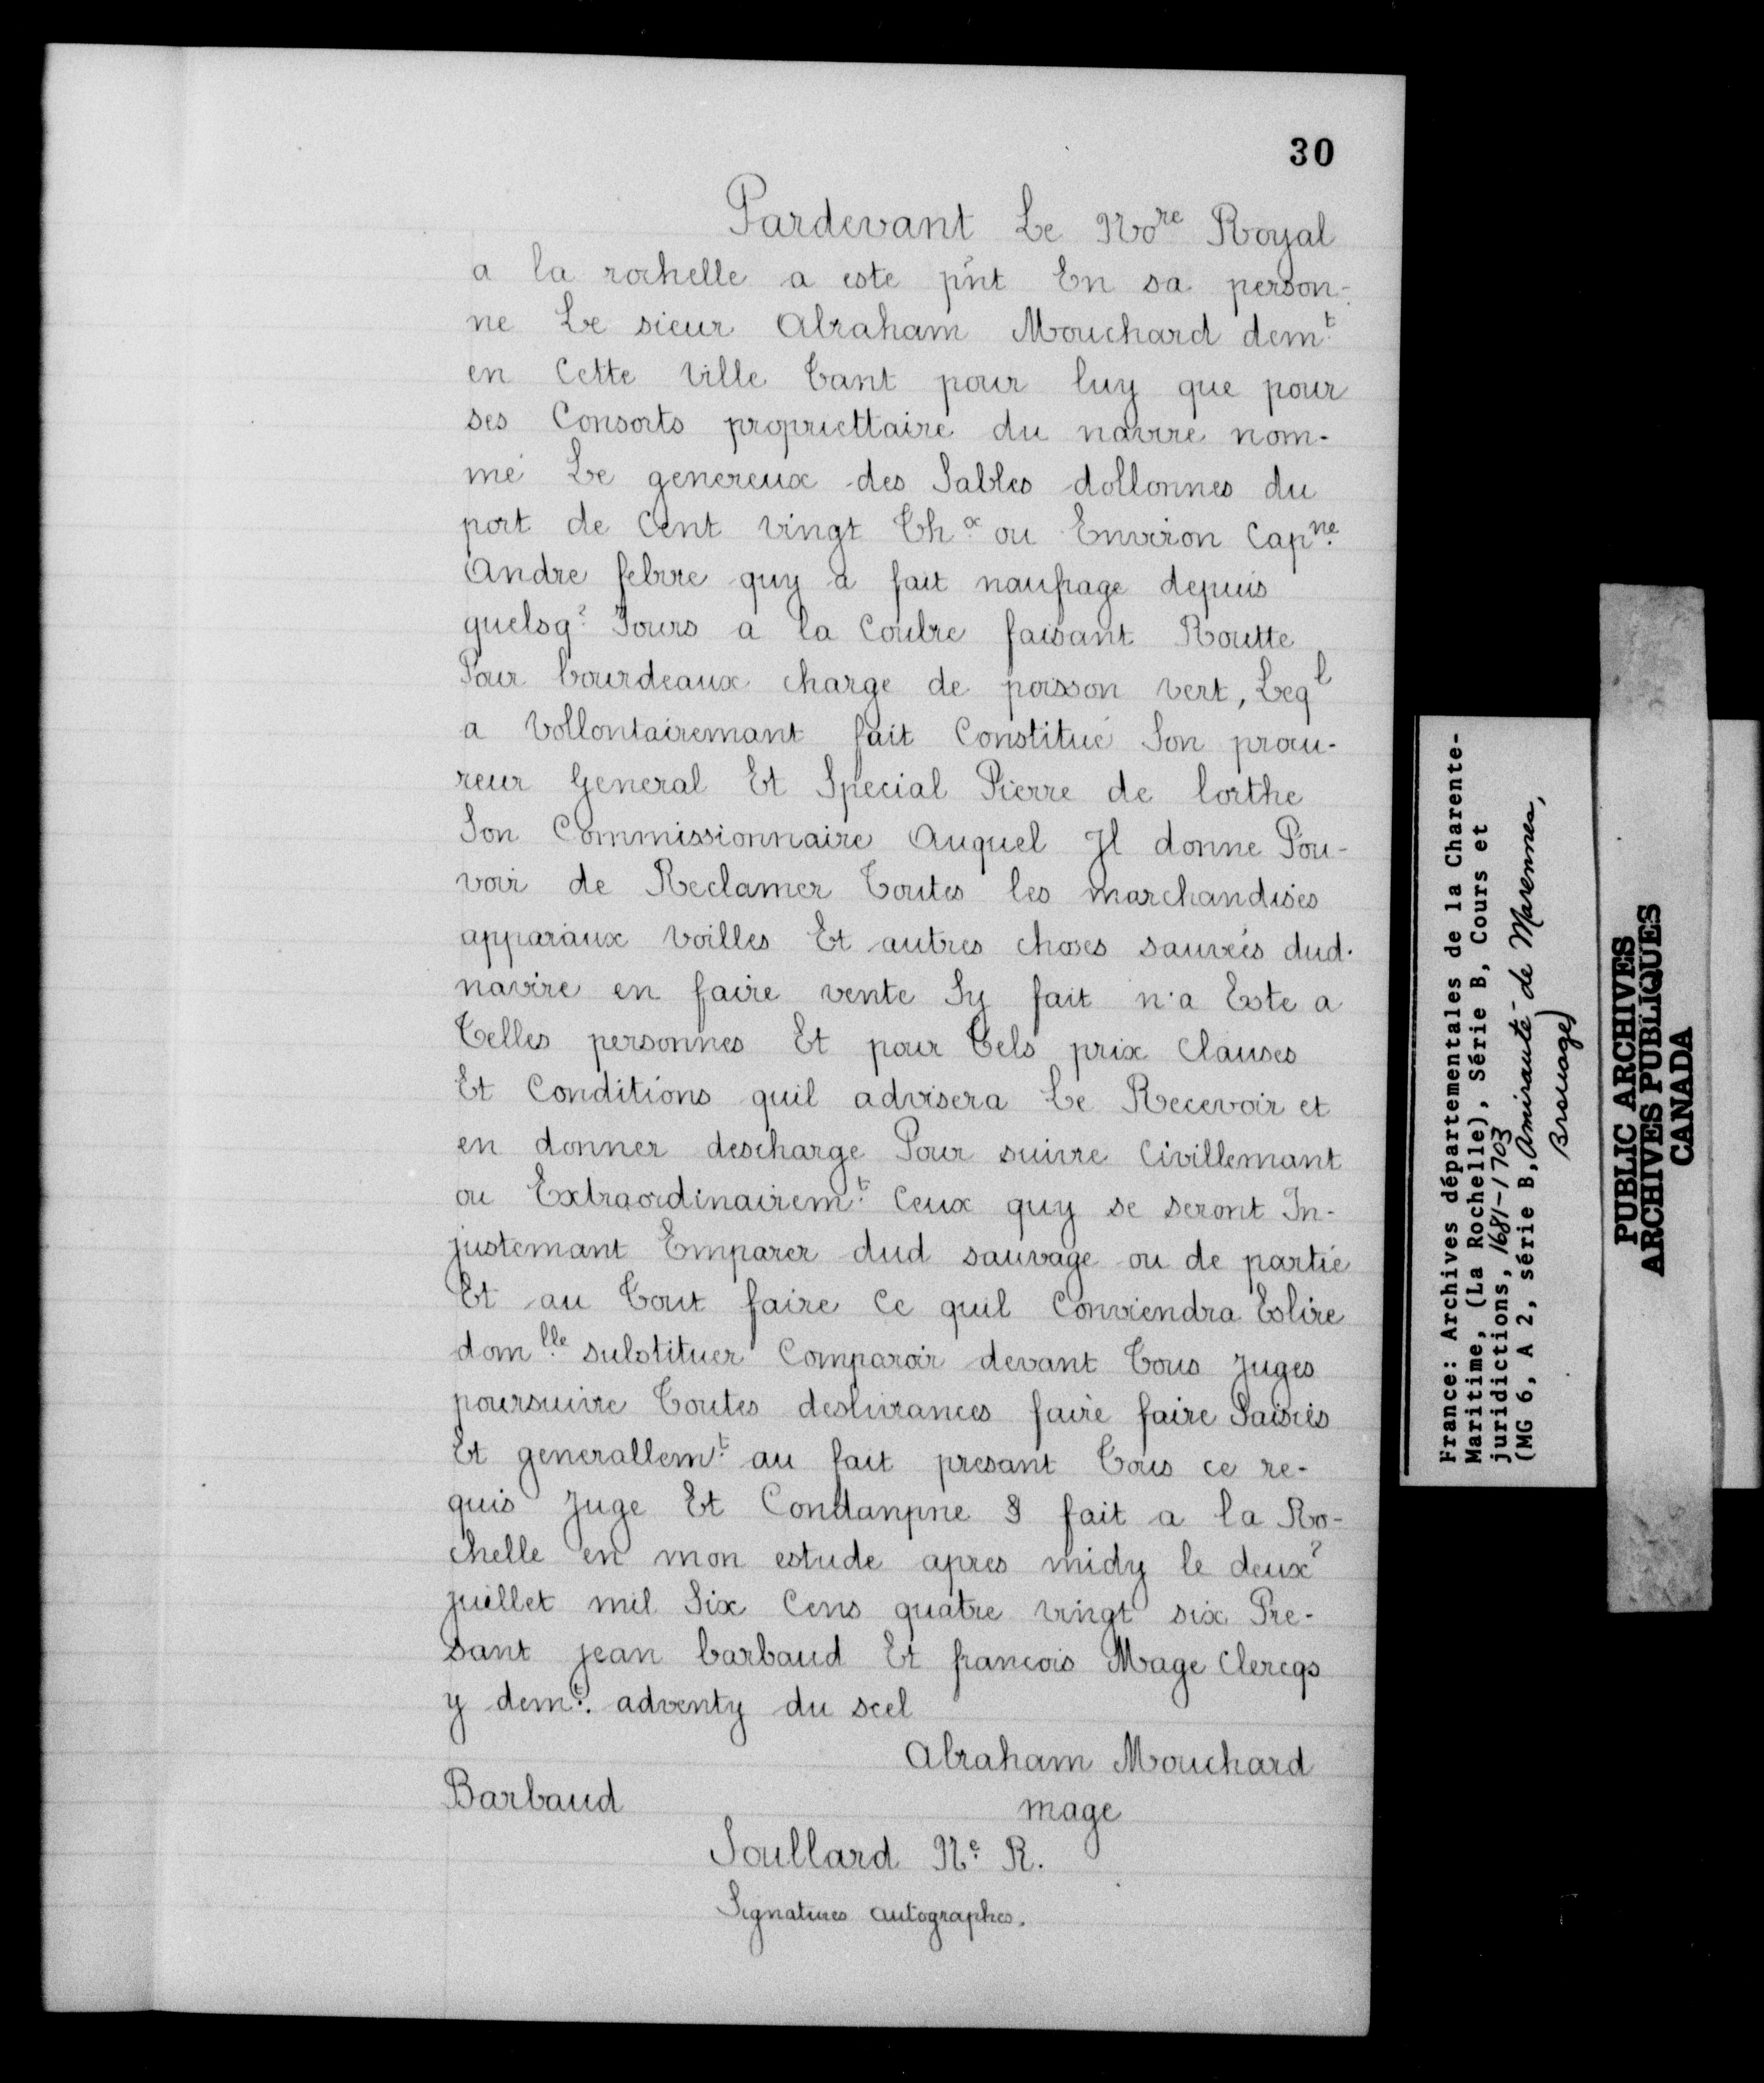 30
Pardevant Le Nore Royal
a la rochelle a este pñt En sa person-
ne Le sieur Abraham Mouchard demt
en Cette Ville Tant pour luy que pour
ses Consorts propriettaire du navire nom-
mé Le genereux des Sables dollonnes du
port de Cent vingt Thx ou Environ Capne
Andre febvre quy a fait naufrage depuis
quelsq? Jours a la Coubre faisant Routte
Pour bourdeaux charge de poisson vert, Leql
a Vollontairemant fait Constitué Son procu-
reur General Et Special Pierre de lorthe
Son Commissionnaire Auquel Jl donne Pou-
voir de Reclamer Toutes les marchandises
apparaux Voilles Et autres choses sauvées dud.
navire en faire vente Sy fait n'a Este a
Telles personnes Et pour Tels prix Clauses
Et Conditions quil advisera Le Recevoir et
en donner descharge Pour suivre Civillemant
ou Extraordinairemt Ceux quy se seront In-
justemant Emparer dud sauvage ou de partie
Et au Tout faire Ce quil Conviendra Eslire
domlle substituer Comparoir devant Tous Juges
poursuivre Toutes deslivrances faire faire Saisies
Et generallemt au fait presant Tous ce re-
quis Juge Et Condanpne § fait a la Ro-
chelle en mon estude apres midy le deux?
juillet mil Six Cens quatre vingt six Pre-
sant jean barbaud Et francois Mage Clercqs
y demt. adventy du scel
Abraham Mouchard
Barbaud mage
Soullard Ne R.
Signatures autographes.
France: Archives départementales de la Charente-
Maritime, (La Rochelle), Série B, Cours et
juridictions, 1681-1703
(MG 6, A 2, série B, Amirauté de Marennes,
Brouage)
PUBLIC ARCHIVES
ARCHIVES PUBLIQUES
CANADA